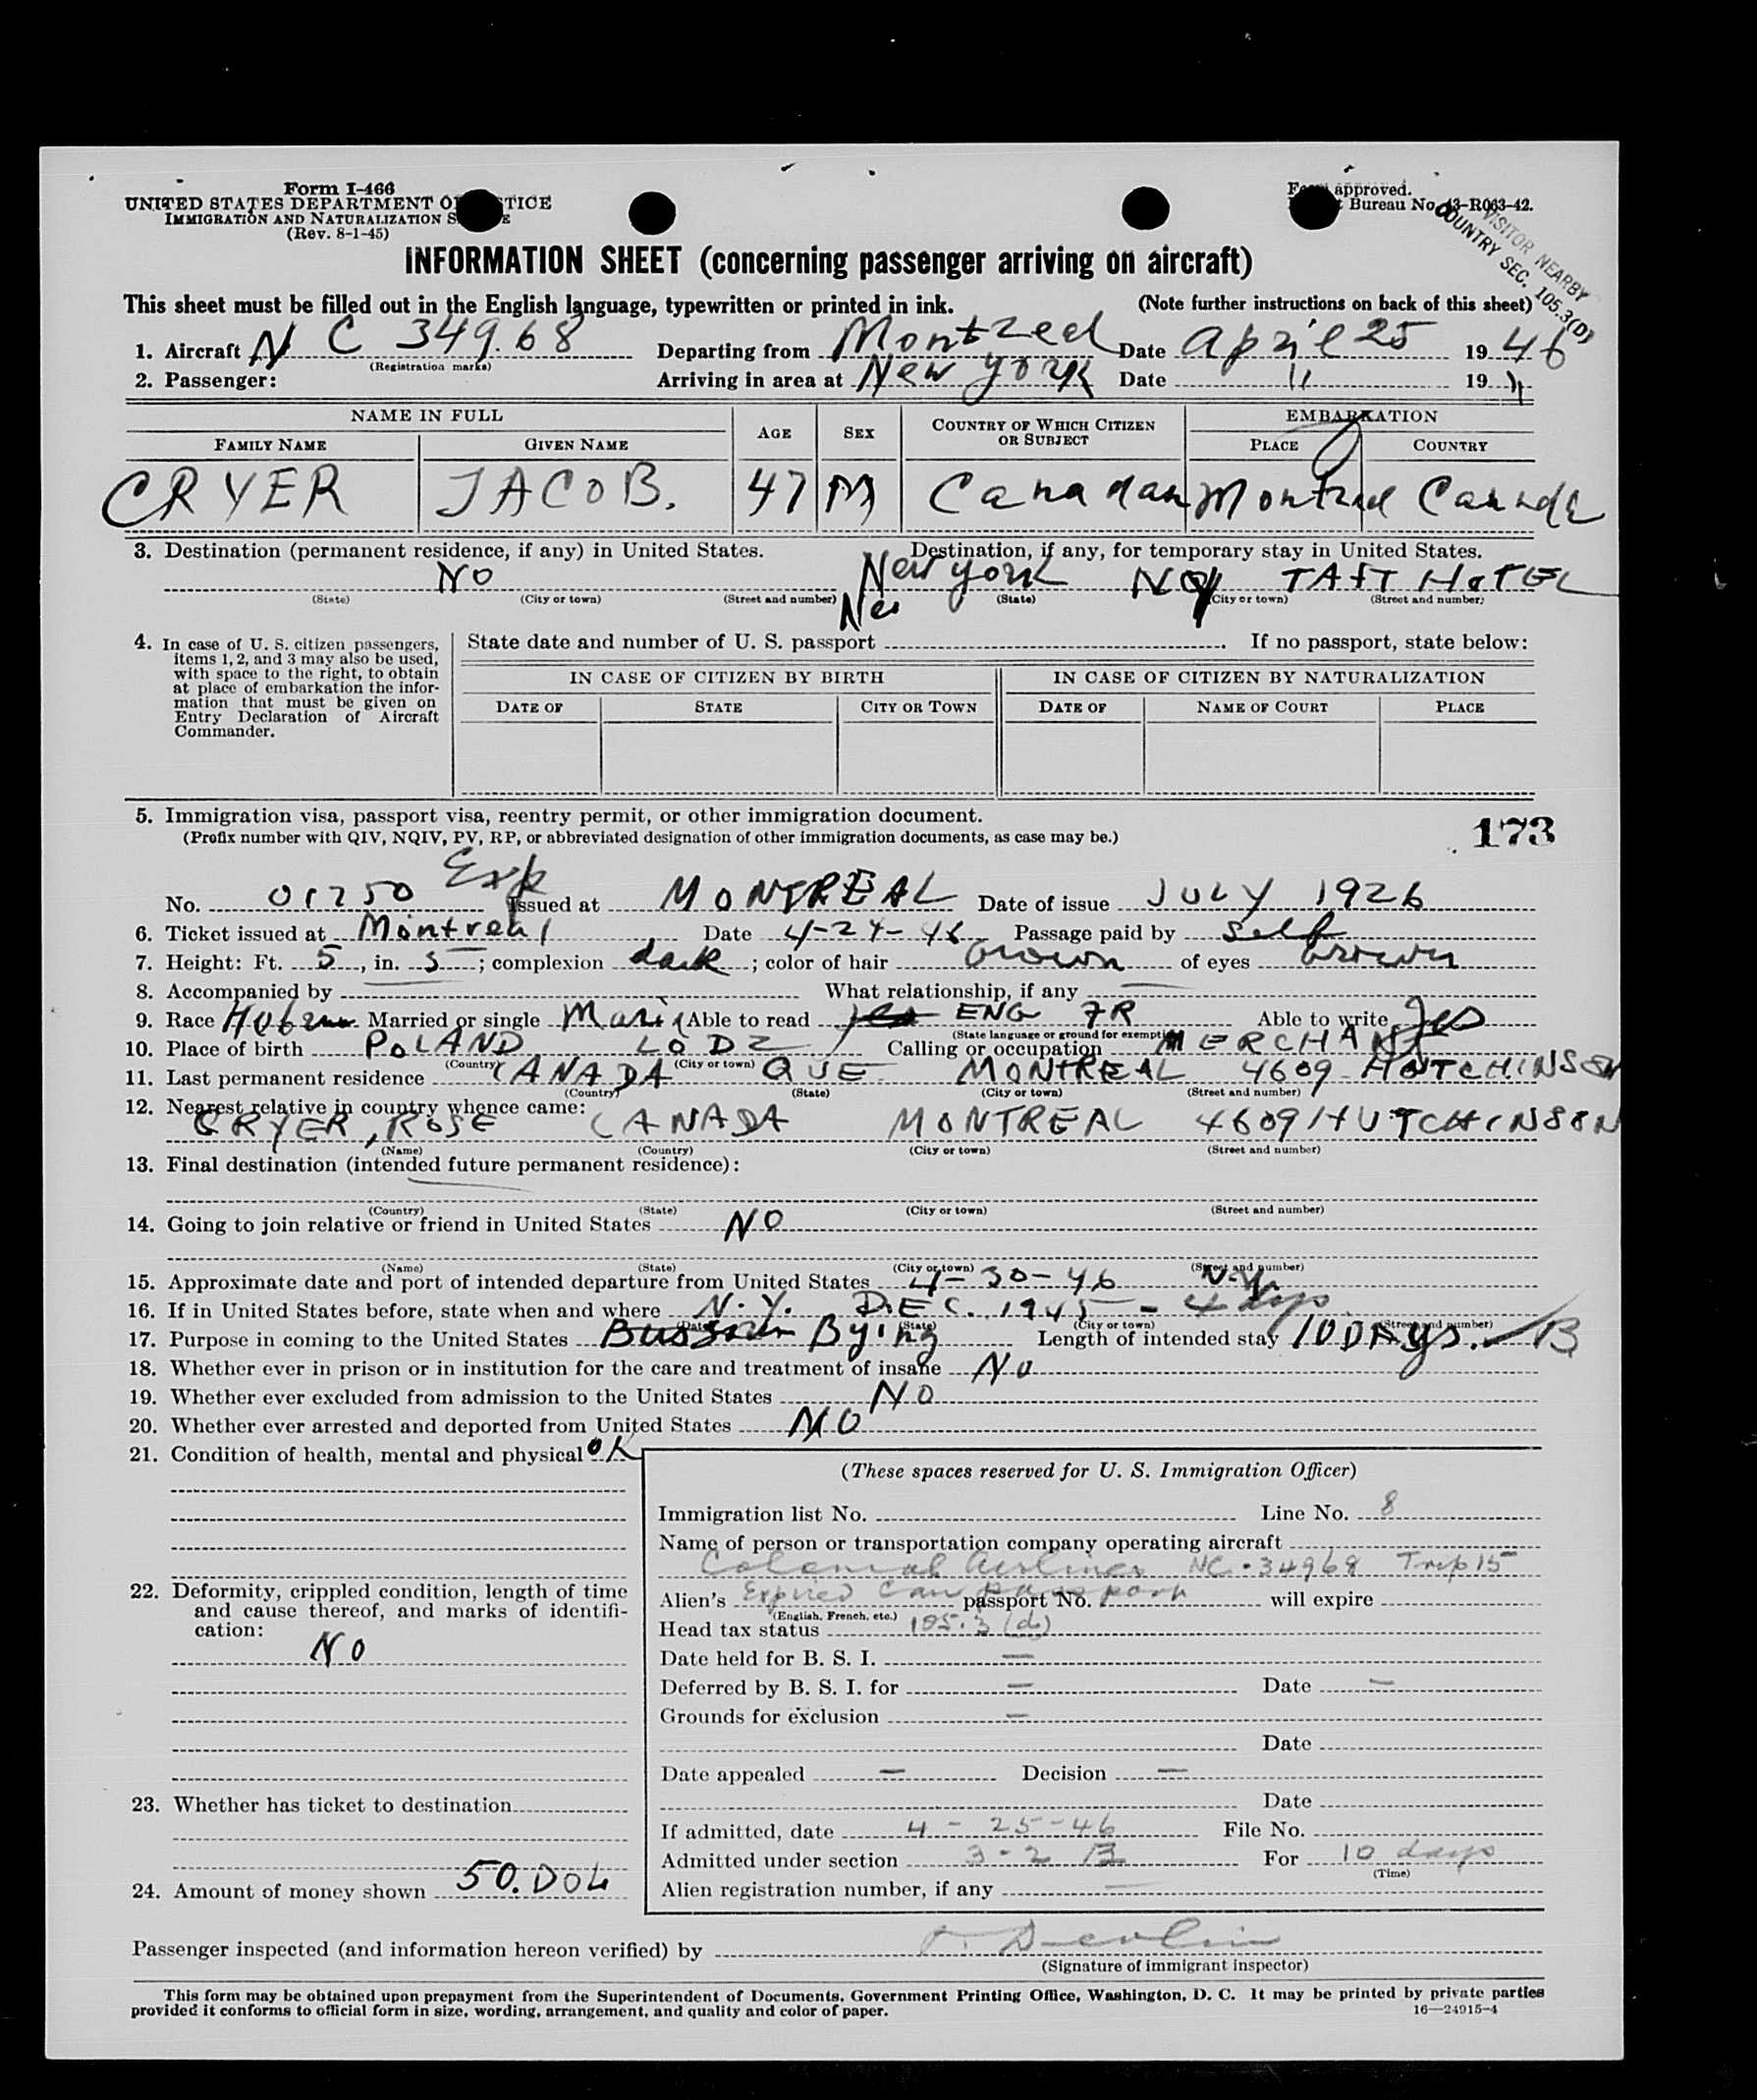 Form I-466
UNITED STATES DEPARTMENT OF JUSTICE
IMMIGRATION AND NATURALIZATION SERVICE
(Rev. 8-1-45)
Form approved.
Bureau No. 43-R063-42.
VISITOR NEARBY
COUNTRY SEC. 105.3(D)
INFORMATION SHEET (concerning passenger arriving on aircraft)
This sheet must be filled out in the English language, typewritten or printed in ink. (Note further instructions on back of this sheet)
1. Aircraft N C 34968 Departing from Montreal Date April 25 1946
(Registration marks)
2. Passenger: Arriving in area at New York Date " 19 "
NAME IN FULL AGE SEX COUNTRY OF WHICH CITIZEN OR SUBJECT EMBARKATION
FAMILY NAME GIVEN NAME PLACE COUNTRY
CRYER JACOB. 47 M Canadan Montreal Canada
3. Destination (permanent residence, if any) in United States. Destination, if any, for temporary stay in United States.
No New York NY TAFT HOTEL
(State) (City or town) (Street and number) (State) (City or town) (Street and number)
4. In case of U. S. citizen passengers, items 1, 2, and 3 may also be used, with space to the right, to obtain at place of embarkation the information that must be given on Entry Declaration of Aircraft Commander.
State date and number of U. S. passport . If no passport, state below:
IN CASE OF CITIZEN BY BIRTH IN CASE OF CITIZEN BY NATURALIZATION
DATE OF STATE CITY OR TOWN DATE OF NAME OF COURT PLACE
5. Immigration visa, passport visa, reentry permit, or other immigration document.
(Prefix number with QIV, NQIV, PV, RP, or abbreviated designation of other immigration documents, as case may be.)
173
Exp
No. 01750 Issued at MONTREAL Date of issue JULY 1926
6. Ticket issued at Montreal Date 4-24-46 Passage paid by self
7. Height: Ft. 5, in. 5; complexion dark; color of hair brown of eyes brown
8. Accompanied by What relationship, if any —
9. Race Married or single Mari Able to read yes ENG FR Able to write Yes
(State language or ground for exemption)
10. Place of birth POLAND LODZ Calling or occupation MERCHANT
(Country) (City or town)
11. Last permanent residence CANADA QUE MONTREAL 4609 HUTCHINSON
(Country) (State) (City or town) (Street and number)
12. Nearest relative in country whence came:
CRYER, ROSE CANADA MONTREAL 4609 HUTCHINSON
(Name) (Country) (City or town) (Street and number)
13. Final destination (intended future permanent residence):
(Country) (State) (City or town) (Street and number)
14. Going to join relative or friend in United States NO
(Name) (State) (City or town) (Street and number)
15. Approximate date and port of intended departure from United States 4-30-46 N.Y.
16. If in United States before, state when and where N.Y. DEC. 1945 - 4 days
(Date) (State) (City or town) (Street and number)
17. Purpose in coming to the United States Bying Length of intended stay 10 DAYs. B
18. Whether ever in prison or in institution for the care and treatment of insane No
19. Whether ever excluded from admission to the United States NO
20. Whether ever arrested and deported from United States NO
21. Condition of health, mental and physical OK
(These spaces reserved for U. S. Immigration Officer)
Immigration list No. Line No. 8
Name of person or transportation company operating aircraft
Colonial Airlines NC-34968 Trip 15
22. Deformity, crippled condition, length of time and cause thereof, and marks of identification:
No
Alien's Expired Can passport passport No. will expire
(English, French, etc.)
Head tax status 105.3(d)
Date held for B. S. I. —
Deferred by B. S. I. for — Date —
Grounds for exclusion —
Date
Date appealed — Decision —
23. Whether has ticket to destination
Date
If admitted, date 4-25-46 File No.
Admitted under section 3-2 B For 10 days
(Time)
24. Amount of money shown 50. DOL
Alien registration number, if any —
Passenger inspected (and information hereon verified) by
(Signature of immigrant inspector)
This form may be obtained upon prepayment from the Superintendent of Documents, Government Printing Office, Washington, D. C. It may be printed by private parties
provided it conforms to official form in size, wording, arrangement, and quality and color of paper. 16—24915-4